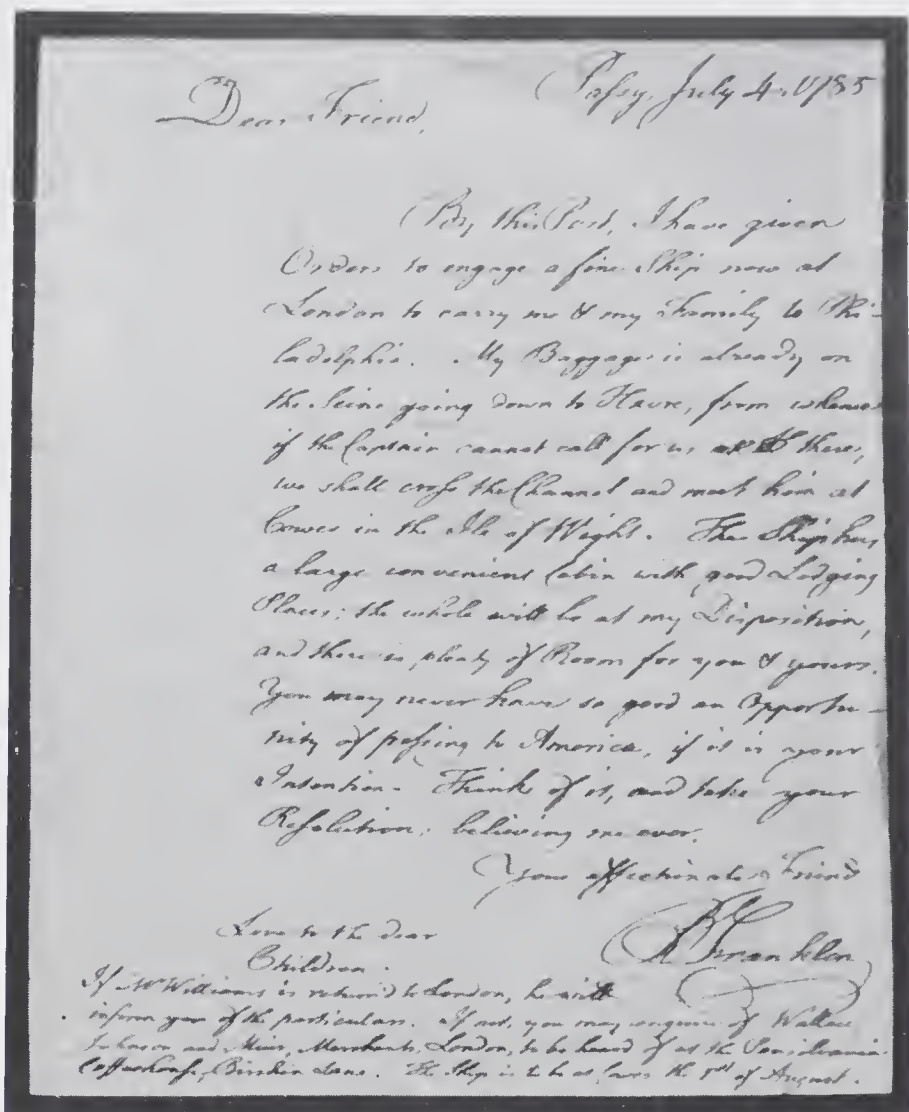 Passy, July 4. 1785
Dear Friend,
By this Post, I have given
Orders to engage a fine Ship now at
London to carry me & my Family to Phi-
ladelphia. My Baggage is already on
the Seine going down to Havre, from whence
if the Captain cannot call for us there,
we shall cross the Channel and meet him at
Cowes in the Isle of Wight. The Ship has
a large convenient Cabin with good Lodging
Places; the whole will be at my Disposition,
and there is plenty of Room for you & yours.
You may never have so good an Opportu-
nity of passing to America, if it is your
Intention. Think of it, and take your
Resolution; believing me ever,
Your affectionate Friend
B Franklin
Love to the dear
Children.
If Mr Williams is return'd to London, he will
inform you of the particulars. If not, you may enquire of Wallace
Johnson and Muir, Merchants, London, to be heard of at the Pensilvania
Coffeehouse, Birchin Lane. The Ship is to be at Cowes the 1st of August.